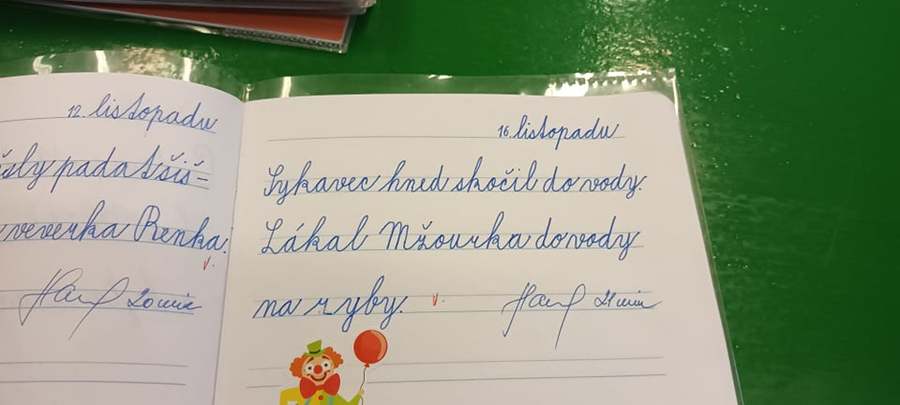 12. listopadu
šly padat šiš-
veverka Renka.
v.
20 min
16. listopadu
Sykavec hned skočil do vody.
Lákal Mžourka do vody
na ryby. v.
21 min